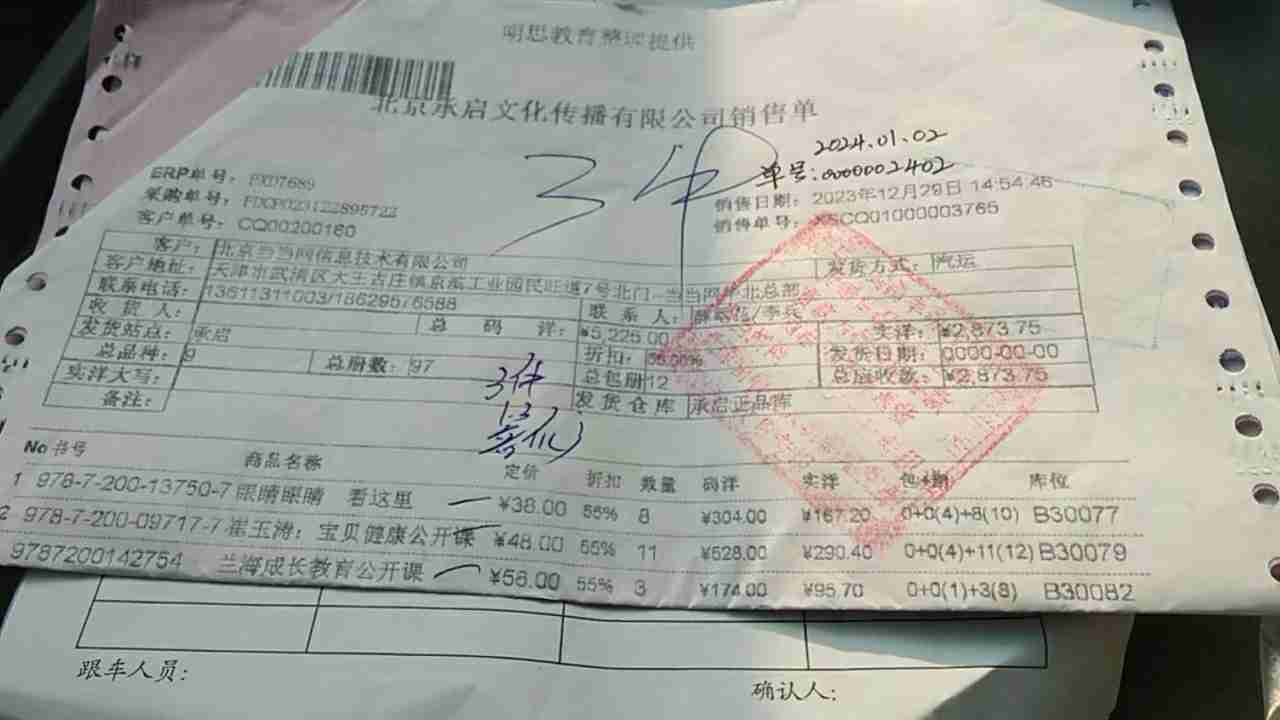 明思教育整理提供
北京承启文化传播有限公司销售单
2024.01.02
单号:0000002402
3件
ERP单号: PXD7689
采购单号: FDCP023122895722
客户单号: CQ00200160
销售日期: 2023年12月29日 14:54:46
销售单号: XSCQ01000003765
客户: 北京当当网信息技术有限公司 发货方式: 汽运
客户地址: 天津市武清区大王古庄镇京滨工业园民旺道7号北门-当当网华北总部
联系电话: 13611311003/18629576588 联系人: /李兵
收货人: 总码洋: ¥5,225.00 实洋: ¥2,873.75
发货站点: 承启 折扣: 55.00% 发货日期: 0000-00-00
总品种: 9 总册数: 97 总包册 12 总应收款: ¥2,873.75
实洋大写: 发货仓库 承启正品库
备注:
3件
No 书号 商品名称 定价 折扣 数量 码洋 实洋 包+册 库位
1 978-7-200-13750-7 眼睛眼睛 看这里 ¥38.00 55% 8 ¥304.00 ¥167.20 0+0(4)+8(10) B30077
2 978-7-200-09717-7 崔玉涛: 宝贝健康公开课 ¥48.00 55% 11 ¥528.00 ¥290.40 0+0(4)+11(12) B30079
9787200142754 兰海成长教育公开课 ¥58.00 55% 3 ¥174.00 ¥95.70 0+0(1)+3(8) B30082
跟车人员: 确认人: